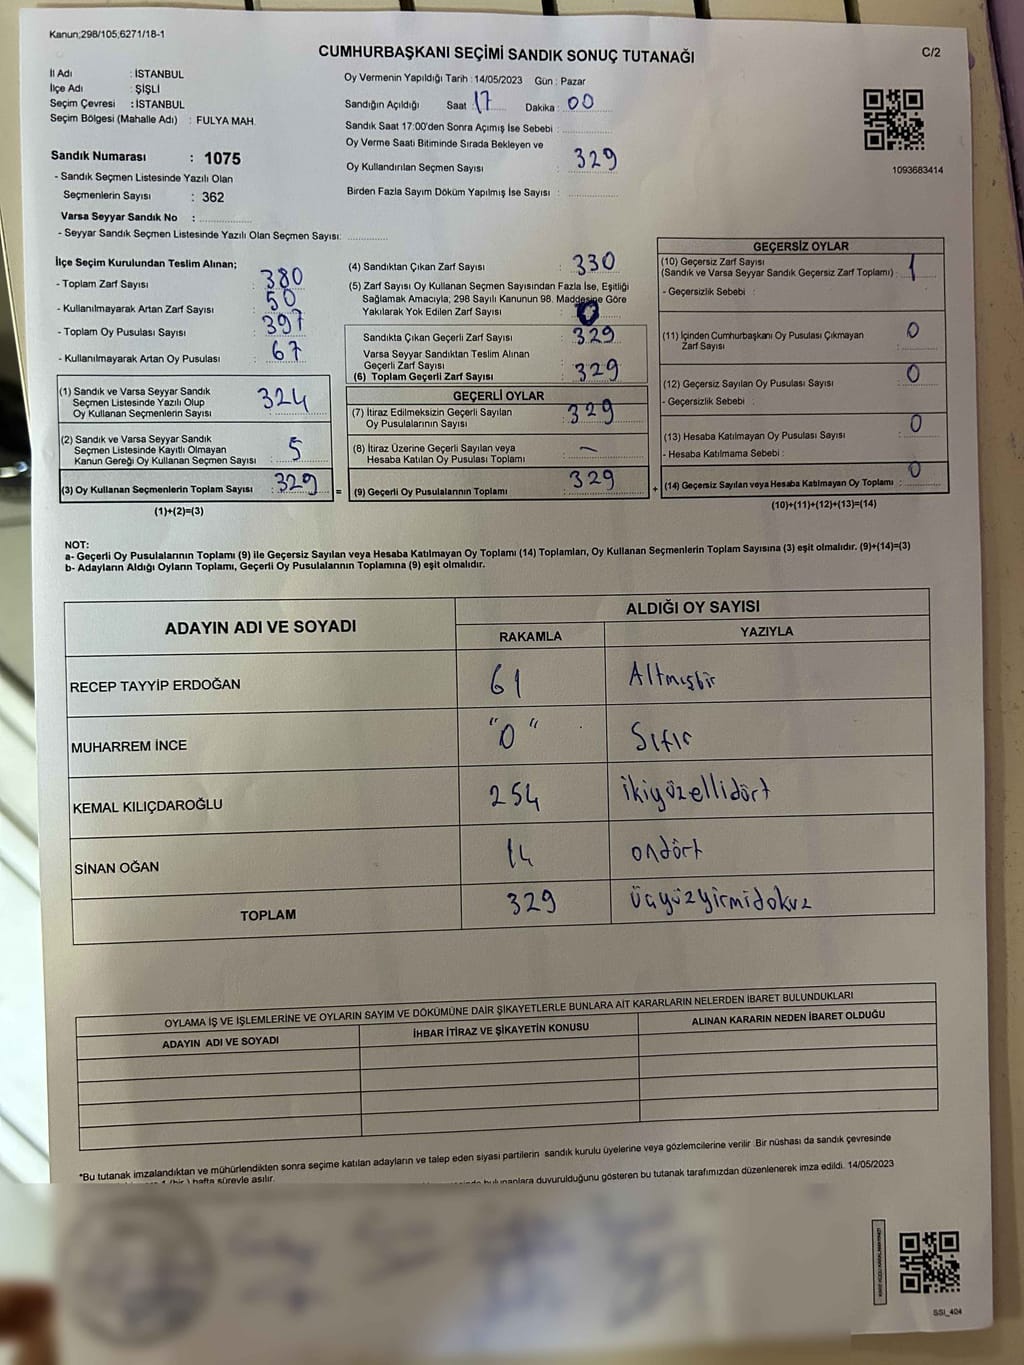 Kanun;298/105;6271/18-1
CUMHURBAŞKANI SEÇİMİ SANDIK SONUÇ TUTANAĞI
C/2
İl Adı : İSTANBUL
İlçe Adı : ŞİŞLİ
Seçim Çevresi : İSTANBUL
Seçim Bölgesi (Mahalle Adı) : FULYA MAH.
Sandık Numarası : 1075
- Sandık Seçmen Listesinde Yazılı Olan
Seçmenlerin Sayısı : 362
Varsa Seyyar Sandık No :
- Seyyar Sandık Seçmen Listesinde Yazılı Olan Seçmen Sayısı:
Oy Vermenin Yapıldığı Tarih : 14/05/2023 Gün : Pazar
Sandığın Açıldığı Saat : 17 Dakika : 00
Sandık Saat 17:00'den Sonra Açımış İse Sebebi :
Oy Verme Saati Bitiminde Sırada Bekleyen ve
Oy Kullandırılan Seçmen Sayısı : 329
Birden Fazla Sayım Döküm Yapılmış İse Sayısı :
1093683414
İlçe Seçim Kurulundan Teslim Alınan;
- Toplam Zarf Sayısı : 380
- Kullanılmayarak Artan Zarf Sayısı : 50
- Toplam Oy Pusulası Sayısı : 397
- Kullanılmayarak Artan Oy Pusulası : 67
(1) Sandık ve Varsa Seyyar Sandık
Seçmen Listesinde Yazılı Olup
Oy Kullanan Seçmenlerin Sayısı : 324
(2) Sandık ve Varsa Seyyar Sandık
Seçmen Listesinde Kayıtlı Olmayan
Kanun Gereği Oy Kullanan Seçmen Sayısı : 5
(3) Oy Kullanan Seçmenlerin Toplam Sayısı : 329
(1)+(2)=(3)
=
(4) Sandıktan Çıkan Zarf Sayısı : 330
(5) Zarf Sayısı Oy Kullanan Seçmen Sayısından Fazla İse, Eşitliği
Sağlamak Amacıyla, 298 Sayılı Kanunun 98. Maddesine Göre
Yakılarak Yok Edilen Zarf Sayısı : 0
Sandıkta Çıkan Geçerli Zarf Sayısı : 329
Varsa Seyyar Sandıktan Teslim Alınan
Geçerli Zarf Sayısı
(6) Toplam Geçerli Zarf Sayısı : 329
GEÇERLİ OYLAR
(7) İtiraz Edilmeksizin Geçerli Sayılan
Oy Pusulalarının Sayısı : 329
(8) İtiraz Üzerine Geçerli Sayılan veya
Hesaba Katılan Oy Pusulası Toplamı : –
(9) Geçerli Oy Pusulalarının Toplamı : 329
+
GEÇERSİZ OYLAR
(10) Geçersiz Zarf Sayısı
(Sandık ve Varsa Seyyar Sandık Geçersiz Zarf Toplamı) : 1
- Geçersizlik Sebebi :
(11) İçinden Cumhurbaşkanı Oy Pusulası Çıkmayan
Zarf Sayısı : 0
(12) Geçersiz Sayılan Oy Pusulası Sayısı : 0
- Geçersizlik Sebebi :
(13) Hesaba Katılmayan Oy Pusulası Sayısı : 0
- Hesaba Katılmama Sebebi :
(14) Geçersiz Sayılan veya Hesaba Katılmayan Oy Toplamı : 0
(10)+(11)+(12)+(13)=(14)
NOT:
a- Geçerli Oy Pusulalarının Toplamı (9) ile Geçersiz Sayılan veya Hesaba Katılmayan Oy Toplamı (14) Toplamları, Oy Kullanan Seçmenlerin Toplam Sayısına (3) eşit olmalıdır. (9)+(14)=(3)
b- Adayların Aldığı Oyların Toplamı, Geçerli Oy Pusulalarının Toplamına (9) eşit olmalıdır.
ADAYIN ADI VE SOYADI
ALDIĞI OY SAYISI
RAKAMLA YAZIYLA
RECEP TAYYİP ERDOĞAN 61 Altmışbir
MUHARREM İNCE "0" Sıfır
KEMAL KILIÇDAROĞLU 254 ikiyüzellidört
SİNAN OĞAN 14 ondört
TOPLAM 329 üçyüzyirmidokuz
OYLAMA İŞ VE İŞLEMLERİNE VE OYLARIN SAYIM VE DÖKÜMÜNE DAİR ŞİKAYETLERLE BUNLARA AİT KARARLARIN NELERDEN İBARET BULUNDUKLARI
ADAYIN ADI VE SOYADI İHBAR İTİRAZ VE ŞİKAYETİN KONUSU ALINAN KARARIN NEDEN İBARET OLDUĞU
*Bu tutanak imzalandıktan ve mühürlendikten sonra seçime katılan adayların ve talep eden siyasi partilerin sandık kurulu üyelerine veya gözlemcilerine verilir .Bir nüshası da sandık çevresinde
1 (bir ) hafta süreyle asılır.
bulunanlara duyurulduğunu gösteren bu tutanak tarafımızdan düzenlenerek imza edildi. 14/05/2023
SSI_404